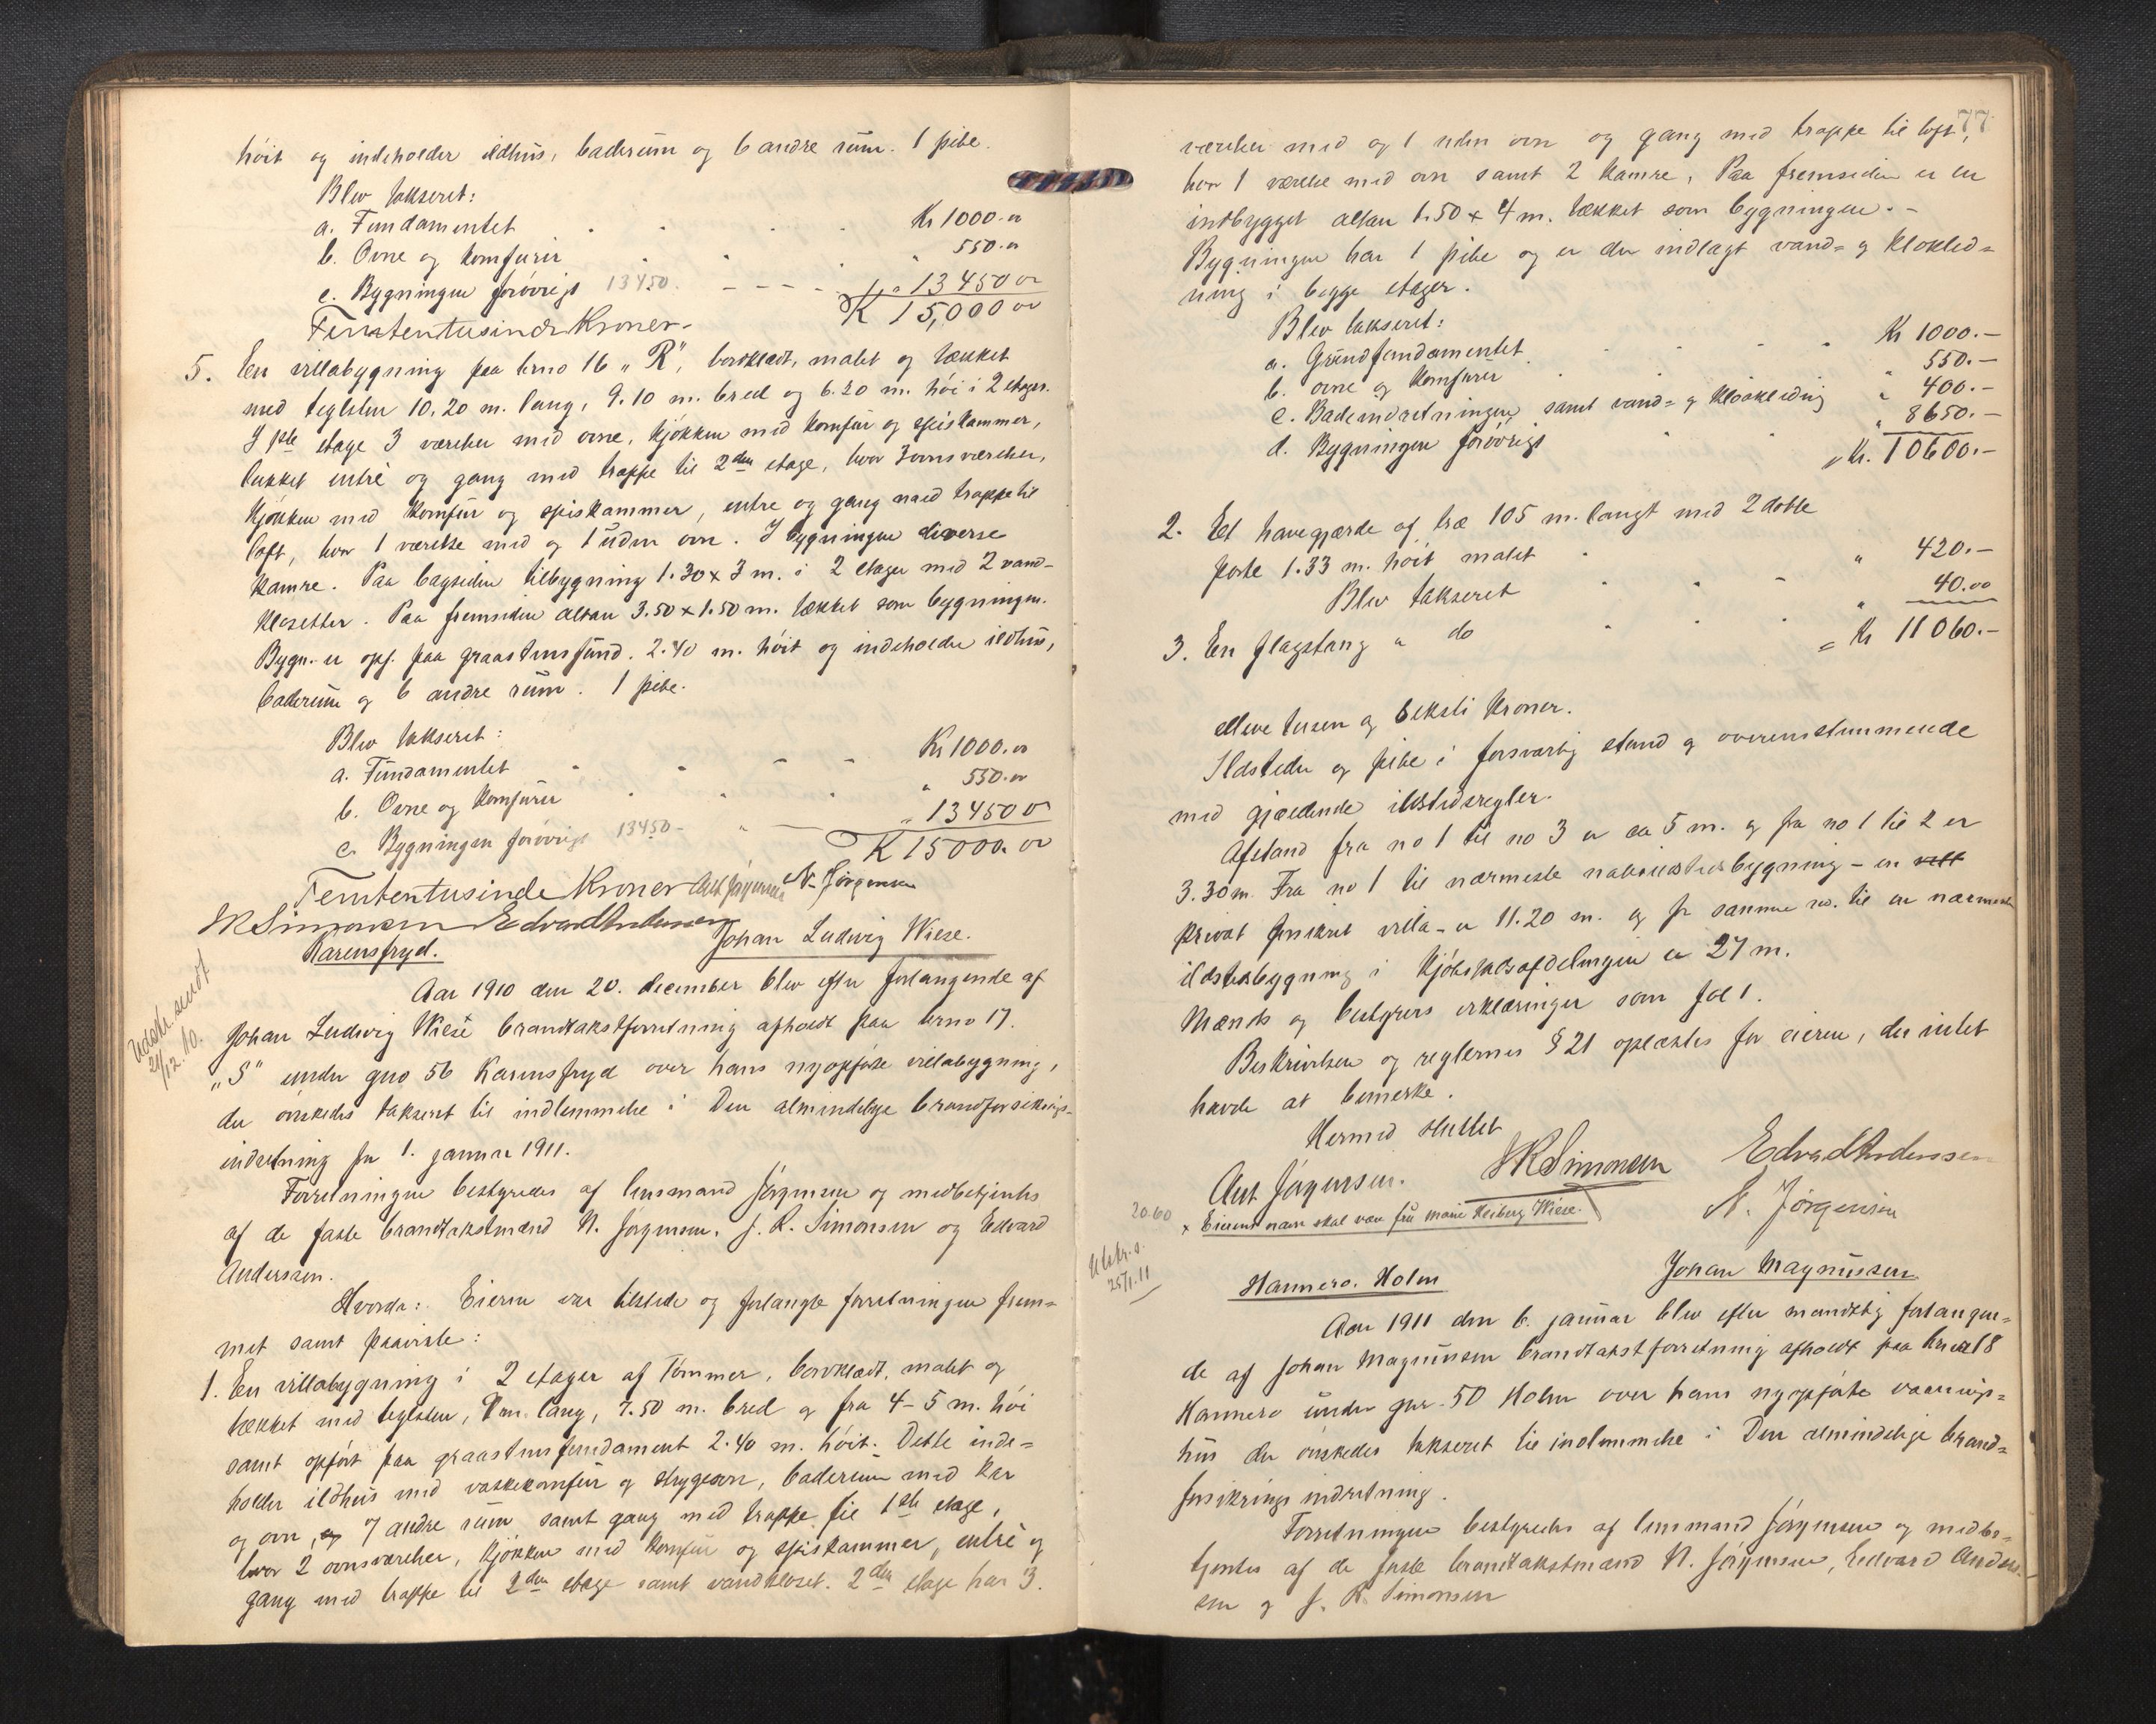 høit og indeholder ildhus, baderum og 6 andre rum. 1 pibe.
Blev takseret:
a. Fundamentet Kr 1000.00
b. Ovne og komfurer " 550.00
c. Bygningen forøvrigt 13450. " 13450 00
Femtentusinde Kroner. K 15,000 00
5. En villabygning paa brno 16 "R", bordklædt, malet og tækket
med teglsten 10.20 m. lang, 9.10 m. bred og 6.20 m. høi i 2 etager.
I 1ste etage 3 værelser med ovne, kjøkken med komfur og spiskammer,
lukket entré og gang med trappe til 2den etage, hvor 3 ovnsværelser,
kjøkken med komfur og spiskammer, entre og gang med trappe til
loft, hvor 1 værelse med og 1 uden ovn. I bygningen diverse
kamre. Paa bagsiden tilbygning 1.30 x 3 m. i 2 etager med 2 vand-
klosetter. Paa fremsiden altan 3.50 x 1.50 m. tækket som bygningen.
Bygn. er opf. paa graastensfund. 2.40 m. høit og indeholder ildhus,
baderum og 6 andre rum. 1 pibe.
Blev takseret:
a. Fundamentet Kr 1000.00
b. Ovne og komfurer " 550.00
c. Bygningen forøvrigt 13450 - " 13450 0
K 15000.00
Femtentusinde Kroner Ant Jørgensen N. Jørgensen
JK Simonsen Edvard Andersen
Karensfryd. Johan Ludwig Wiese.
Udskr. sendt
24/12.10.
Aar 1910 den 20. december blev efter forlangende af
Johan Ludwig Wiese brandtakstforretning afholdt paa brno 17.
"S" under gno 56 Karensfryd over hans nyopførte villabygning,
der ønskedes takseret til indlemmelse i Den almindelige brandforsikrings-
indretning fra 1. januar 1911.
Forretningen bestyredes af lensmand Jørgensen og medbetjentes
af de faste brandtakstmænd N. Jørgensen, J. K. Simonsen og Edvard
Anderssen.
Hvorda: Eieren var tilstede og forlangte forretningen frem-
met samt paaviste:
1. En villabygning i 2 etager af Tømmer, bordklædt, malet og
tækket med teglsten, lang, 7.50 m. bred og fra 4-5 m. høi
samt opført paa graastensfundament 2.40 m. høit. Dette inde-
holder ildhus med vaskekomfur og strygeovn, baderum med kar
og ovn, og 7 andre rum samt gang med trappe til 1ste etage,
hvor 2 ovnsværelser, kjøkken med komfur og spiskammer, entré og
gang med trappe til 2den etage samt vandkloset. 2den etage har 3
77
værelser med og 1 uden ovn og gang med trappe til loft,
hvor 1 værelse med ovn samt 2 kamre. Paa fremsiden er en
indbygget altan 1.50 x 4 m. tækket som bygningen. -
Bygningen har 1 pibe og er der indlagt vand- og kloakled-
ning i begge etager.
Blev takseret:
a. Grundfundamentet Kr 1000.-
b. ovne og komfurer " 550.-
c. Badeindretningen samt vand- og kloakledning " 400.-
d. Bygningen forøvrigt " 8650.-
Kr. 10600.-
2. Et havegjærde af træ 105 m. langt med 2 doble
porte 1.33 m. høit malet
Blev takseret " 420.-
3. En flagstang " do " 40.00
= Kr 11060.-
elleve tusen og seksti Kroner.
Ildsteder og pibe i forsvarlig stand og overensstemmende
med gjældende ildstedsregler.
Afstand fra no 1 til no 3 er ca 5 m. og fra no 1 til 2 er
3.30 m. Fra no 1 til nærmeste naboildstedsbygning - en
privat forsikret villa - er 11.20 m. og fr samme no. til en nærmeste
ildstedsbygning i Kjøbstadsafdelingen er 27 m.
Mænds og bestyrers erklæringer som fol 1.
Beskrivelsen og reglernes § 21 oplæstes for eieren, der intet
havde at bemerke.
Hermed sluttet
Ant Jørgensen. JK Simonsen Edvard Andersen
N. Jørgensen
20.60
x Eierens navn skal være frü Marie Heiberg Wiese.
Utskr. s.
25/1.11
Hannero. Holm Johan Magnussen
Aar 1911 den 6. januar blev efter mundtlig forlangen-
de af Johan Magnussen brandtakstforretning afholdt paa brno 18
Hannero under gnr. 50 Holm over hans nyopførte vaanings-
hus der ønskedes takseret til indlemmelse i Den almindelige brand-
forsikrings indretning.
Forretningen bestyredes af lensmand Jørgensen og medbe-
tjentes af de faste brandtakstmænd N. Jørgensen, Edvard Anders-
sen og J. K. Simonsen